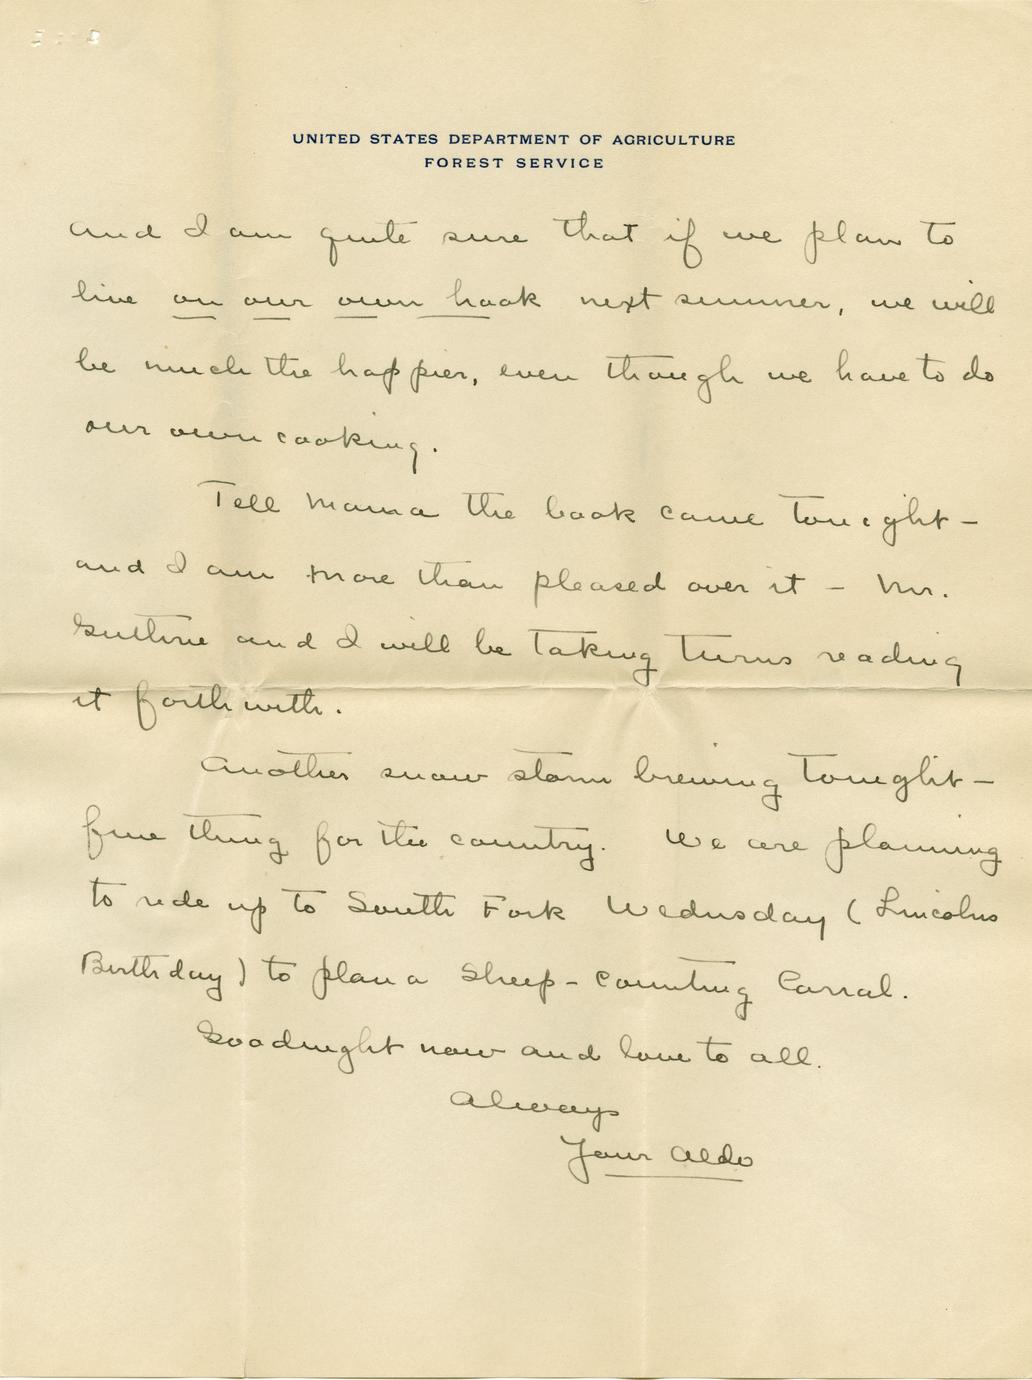 UNITED STATES DEPARTMENT OF AGRICULTURE
FOREST SERVICE
and I am quite sure that if we plan to
live on our own hook next summer, we will
be much the happier, even though we have to do
our own cooking.
Tell Mama the book came tonight –
and I am more than pleased over it – Mr.
Guthrie and I will be taking turns reading
it forthwith.
Another snow storm brewing tonight –
fine thing for the country. We are planning
to ride up to South Fork Wednesday (Lincolns
Birthday) to plan a Sheep-counting Corral.
Goodnight now and love to all.
Always
Your Aldo